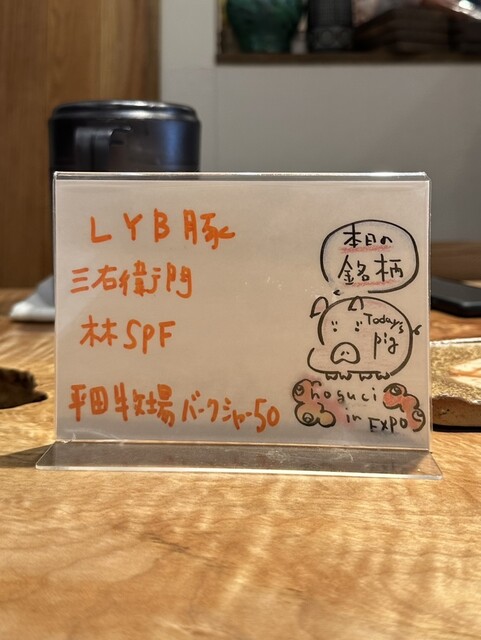 LYB豚
三右衛門
林SPF
平田牧場バークシャー50
本日の
銘柄
Today's
pig
noguci
in EXPO